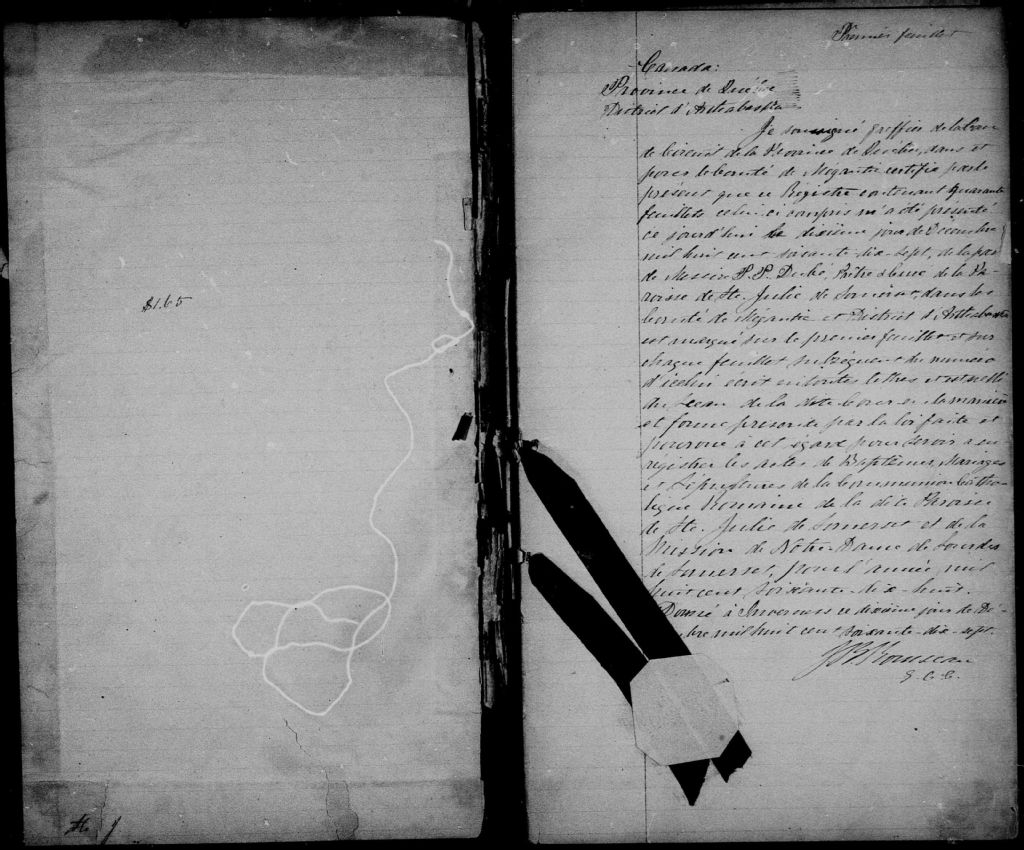 $1.65
Ste. J
Premier feuillet
Canada:
Province de Québec
District d'Arthabaska
Je soussigné greffier de la Cour
de Circuit de la Province de Québec, dans et
pour le Comté de Mégantic certifie par le
présent que ce Régistre contenant quarante
feuillets celui-ci compris m'a été présenté
ce jourd'hui le dixième jour de Décembre
mil huit cent soixante-dix-sept, de la part
de Messire P. P. Dubé, Prêtre & Curé de la Pa-
roisse de Ste. Julie de Somerset, dans le
Comté de Mégantic et District d'Arthabaska
est marqué sur le premier feuillet et sur
chaque feuillet subséquent du numéro
d'icelui écrit en toutes lettres et est scellé
du Sceau de la dite Cour en la manière
et forme prescrite par la loi faite et
pourvue à cet égard pour servir à en
régistrer les actes de Baptêmes, Mariages
et Sépultures de la Communion Catho-
lique Romaine de la dite Paroisse
de Ste. Julie de Somerset et de la
Mission de Notre-Dame de Lourdes
de Somerset, pour l'année mil
huit cent soixante-dix-huit.
Donné à Inverness ce dixième jour de Dé-
bre mil huit cent soixante-dix-sept.
Rousseau
G. C. C.